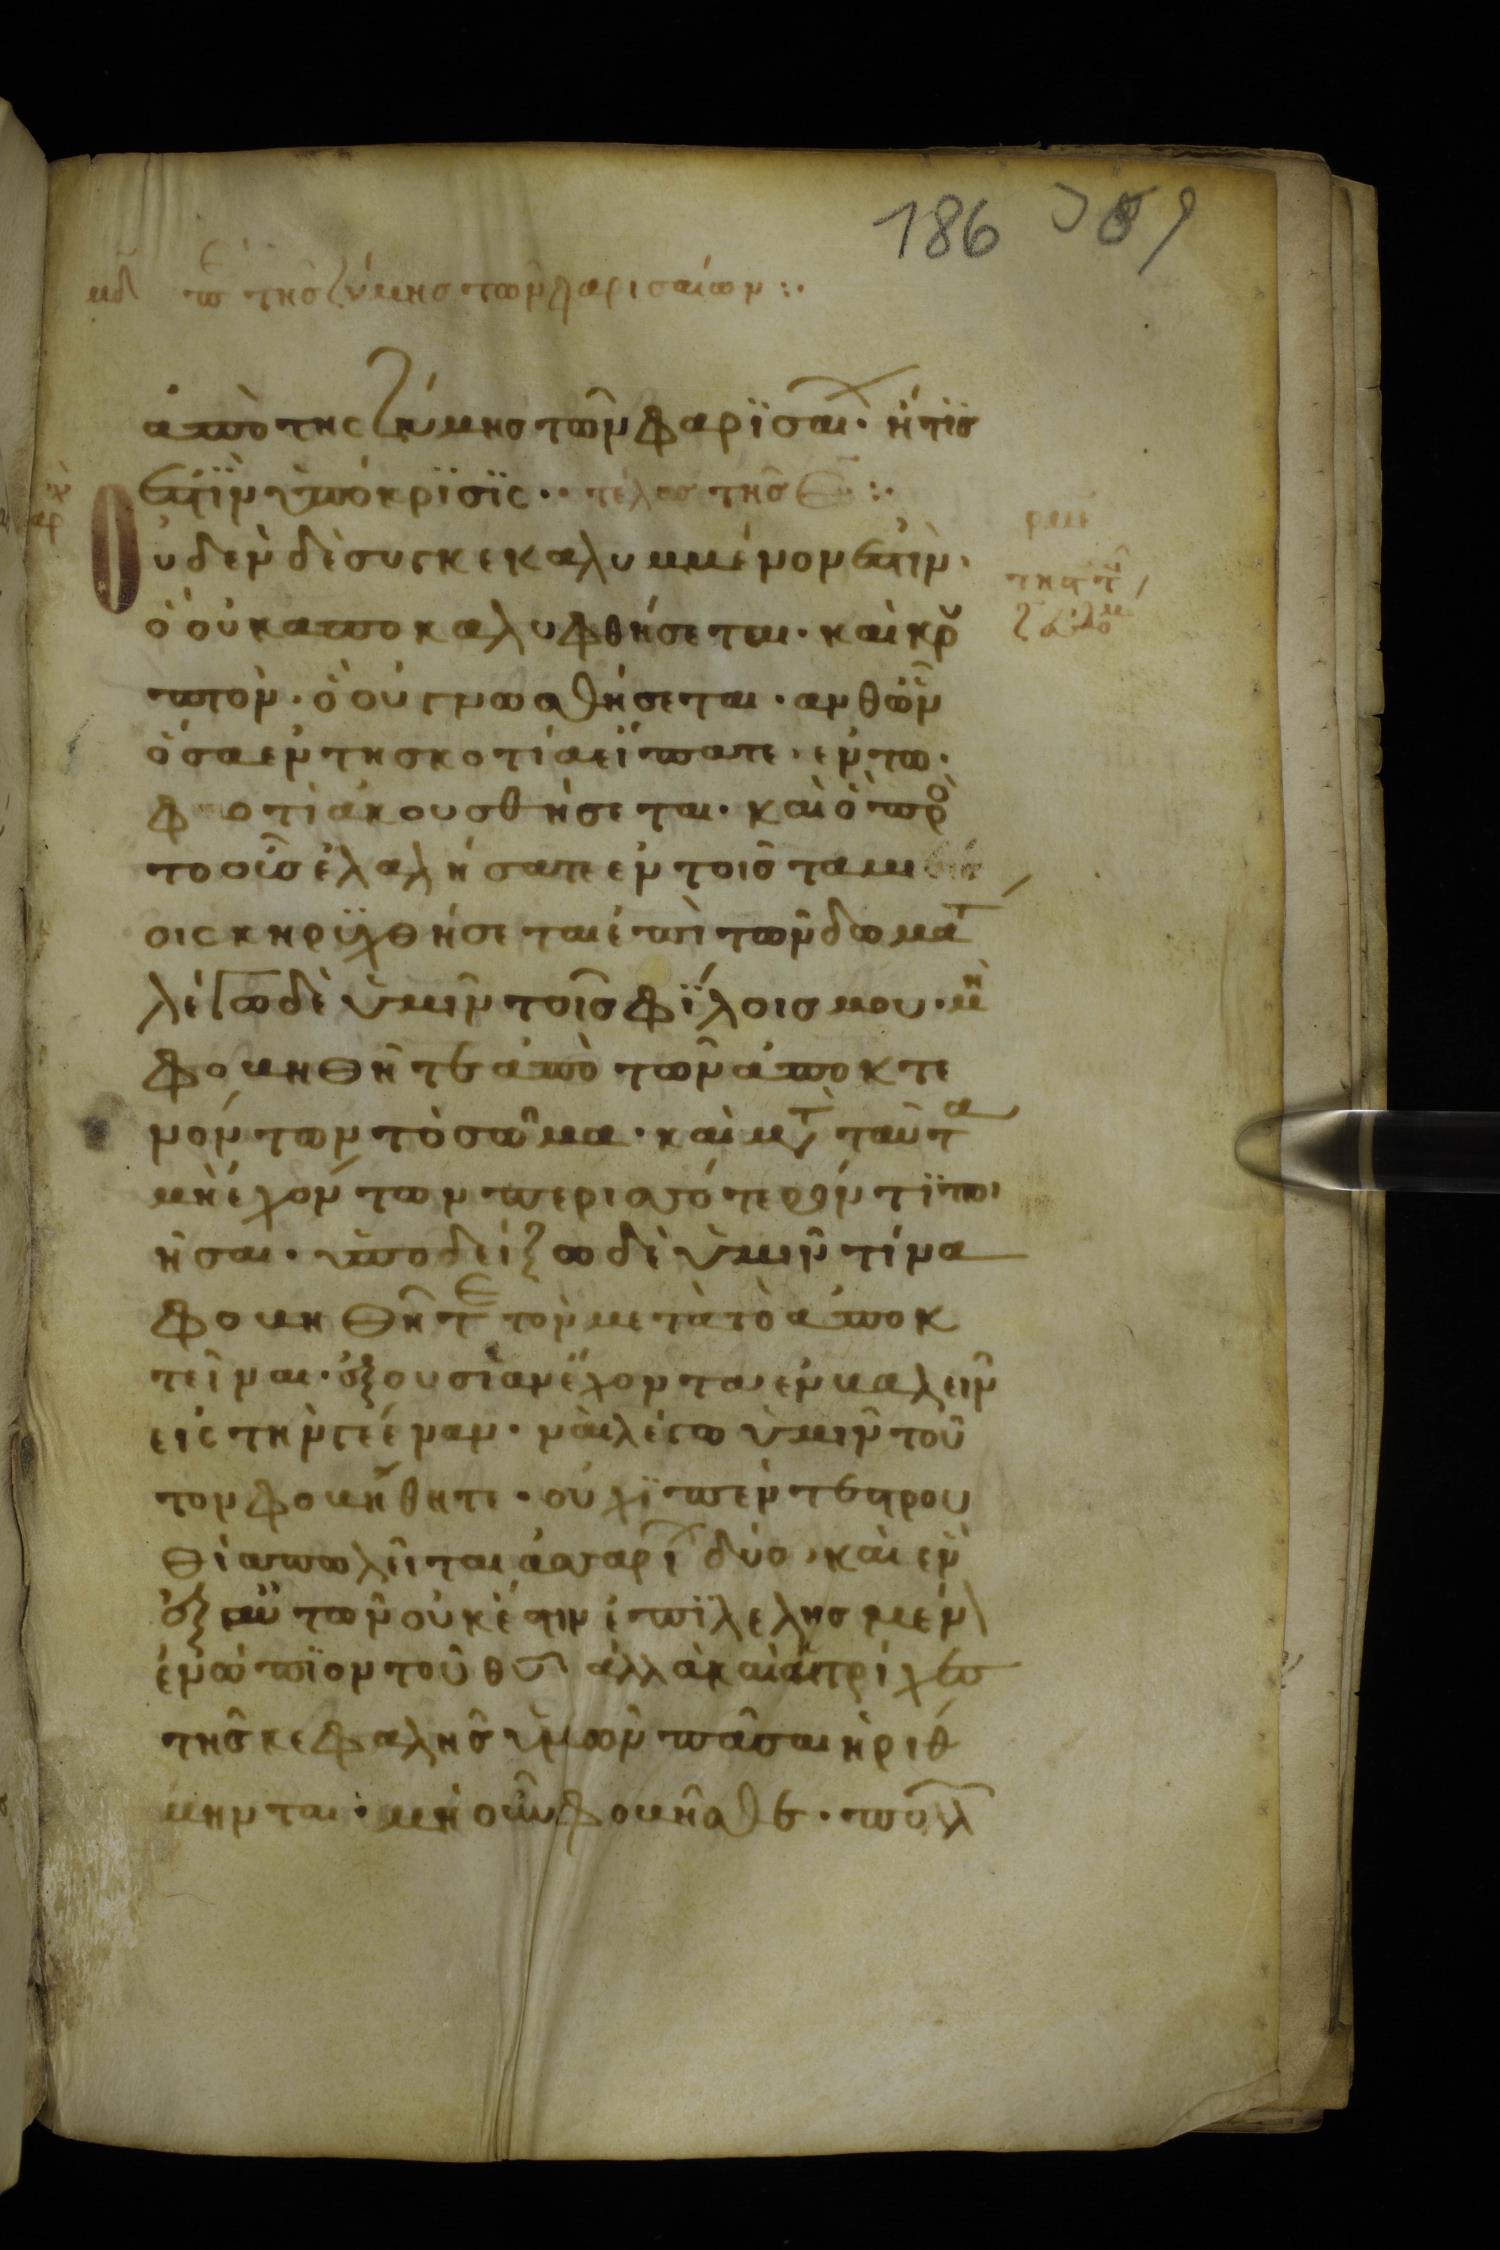 186
μδ πε τῆς ζύμης τῶν φαρισαίων :·
ἀπὸ της ζύμης τῶν φαρϊσαι· ἥτϊς
ἐστῒν ὑπόκρϊσϊς·· τέλος τῆς :·
Οὐδὲν δὲ συγκεκαλυμμένον ἐστὶν·
ὃ οὐκ αποκαλυφθήσεται· καὶ κρυ
πτὸν· ὃ οὐ γνωσθήσεται· ανθῶν
ὅσα ἐν τη σκοτία εἴπατε· ἐν τω·
φωτὶ ἀκουσθήσεται· καὶ ὃ πρὸ
το οὖς ἐλαλήσατε ἐν τοῖς ταμεί
οις κηρϋχθήσεται ἐπὶ τῶν δωματ
λέγω δὲ ὑμῖν τοῖς φΐλοις μου· μὴ
φοβηθῆτε ἀπὸ τῶν ἀποκτε
νόντων τὸ σῶμα· καὶ μτ ταῦτα
μὴ ἐχόντων περισσότερόν τϊ ποι
ῆσαι· ὑποδείξω δὲ ὑμῖν τίνα
φοβηθῆτε τὸν μετὰ τὸ ἀποκ
τεῖναι· ἐξουσίαν ἔχοντα ἐμβαλεῖν
εἰς τὴν γέεναν· ναὶ λέγω ὑμῖν τοῦ
τον φοβήθητε· οὐχῒ πέντε στρου
θία πωλεῖται ἀσσαρι δύο· καὶ ἓν
ἐξ αὐτῶν οὐκ έστιν ἐπϊλελησμέν
ἐνώπϊον τοῦ θυ ἀλλὰ καὶ αἱ τρίχες
τῆς κεφαλῆς ὑμῶν πᾶσαι ἠρίθ
μηνται· μὴ οὖν φοβῆσθε· πολλ